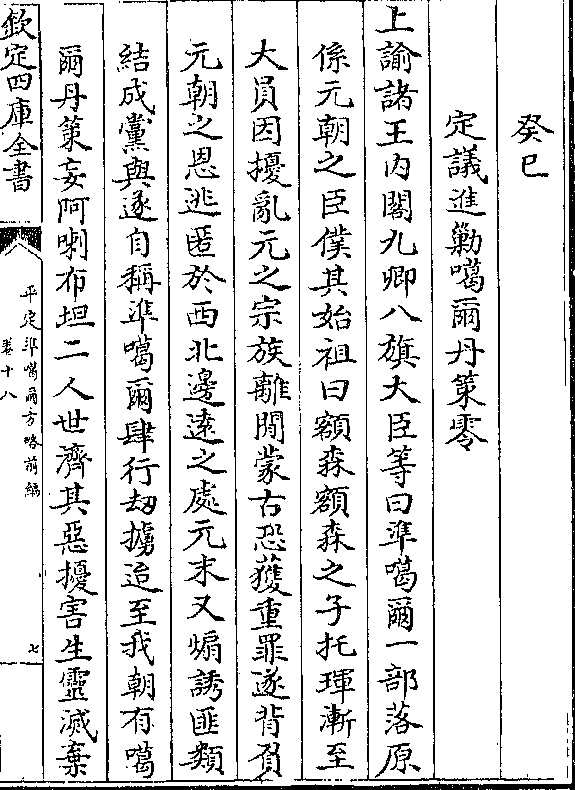 癸巳
定議進勦噶爾丹策零
上諭諸王內閣九卿八旗大臣等曰準噶爾一部落原
係元朝之臣僕其始祖曰額森額森之子托琿漸至
大員因擾亂元之宗族離間蒙古恐獲重罪遂背負
元朝之恩逃匿於西北邊遠之處元末又煽誘匪類
結成黨與遂自稱準噶爾肆行刼擄迨至我朝有噶
爾丹策妄阿喇布坦二人世濟其惡擾害生靈滅棄
欽定四庫全書
平定準噶爾方略前編
卷十八
七